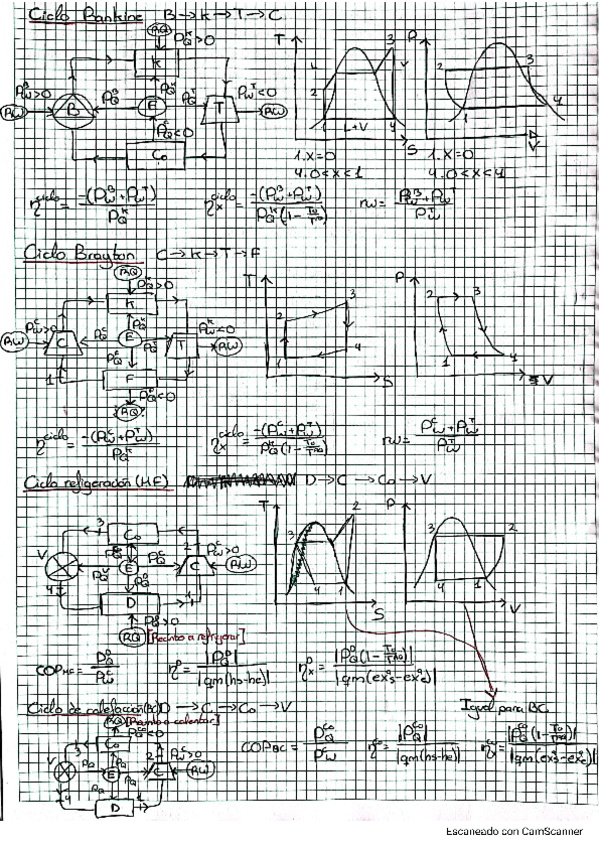 Ciclo Rankine B→K→T→C
RQ
P_Q^K>0
K
P_W^B>0
P_Q^B
P_Q^K
P_Q^T
P_W^T<0
RW
B
E
T
RW
P_Q^C<0
Co
T
3
2
1
L+V
4
S
1.x=0
4.0<x<1
P
2
3
1
4
V
1.x=0
η^ciclo = -(P_W^B+P_W^T) / P_Q^K
η_x^ciclo = -(P_W^B+P_W^T) / P_Q^K(1-T0/TRQ)
rw = P_W^B+P_W^T / P_W^T
Ciclo Brayton C→K→T→F
RQ
P_Q^K>0
K
P_W^C>0
P_Q^C
P_Q^K
P_W^T<0
RW
C
E
T
RW
1
F
P_Q^F<0
RQ
T
2
3
1
4
S
P
2
3
1
4
V
η^ciclo = -(P_W^C+P_W^T) / P_Q^K
η_x^ciclo = -(P_W^C+P_W^T) / P_Q^K(1-T0/TRQ)
rw = P_W^C+P_W^T / P_W^T
Ciclo refrigeración (MF) D→C→Co→V
3
Co
2
P_W^C>0
V
E
C
RW
4
D
1
P_Q^D>0
RQ [Recinto a refrigerar]
T
2
3
4
1
S
P
3
2
4
1
V
COP_MF = P_Q^D / P_W^C
η^D = |P_Q^D| / |qm(hs-he)|
η_x^D = |P_Q^D(1-T0/TRQ)| / |qm(ex_s-ex_e)|
Igual para BC
Ciclo de calefacción (BC) D→C→Co→V
RQ [Recinto a calentar]
P_Q^Co<0
Co
2
P_W^C>0
V
E
C
RW
4
D
1
COP_BC = P_Q^Co / P_W^C
η^Co = |P_Q^Co| / |qm(hs-he)|
η_x^Co = |P_Q^Co(1-T0/TRQ)| / |qm(ex_s-ex_e)|
Escaneado con CamScanner